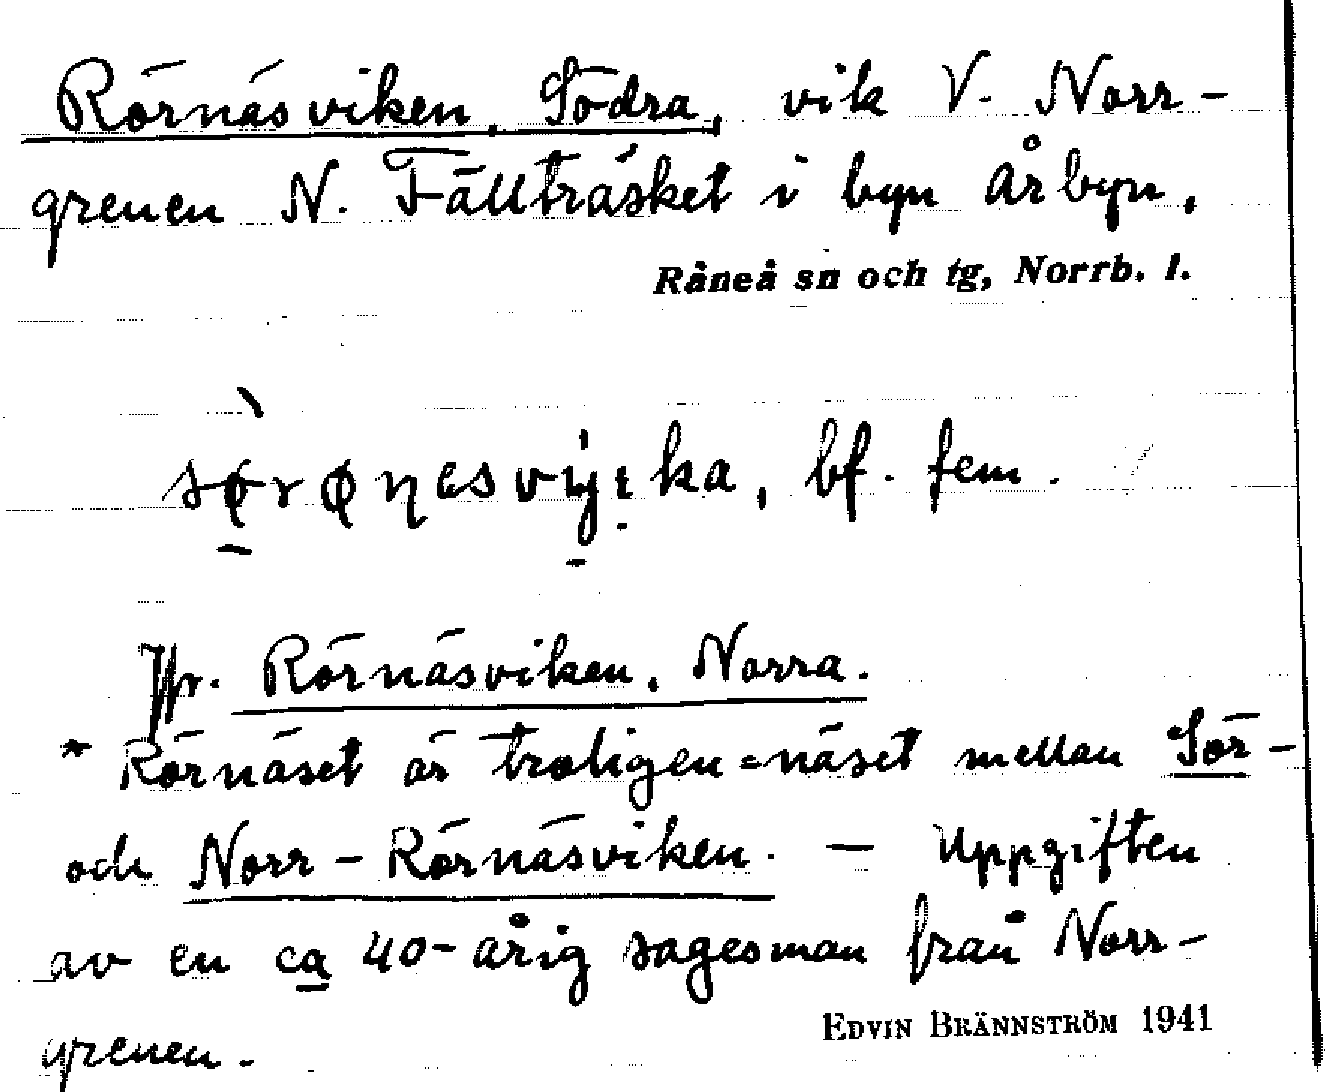 Rörnäsviken, Södra, vik V. Norr-
grenen N. Fällträsket i byn Årbyn,
Råneå sn och tg, Norrb. l.
bf. fem.
Jfr. Rörnäsviken, Norra.
* Rörnäset är troligen = näset mellan Sör-
och Norr-Rörnäsviken. — Uppgiften
av en ca 40-årig sagesman från Norr-
grenen.
EDVIN BRÄNNSTRÖM 1941